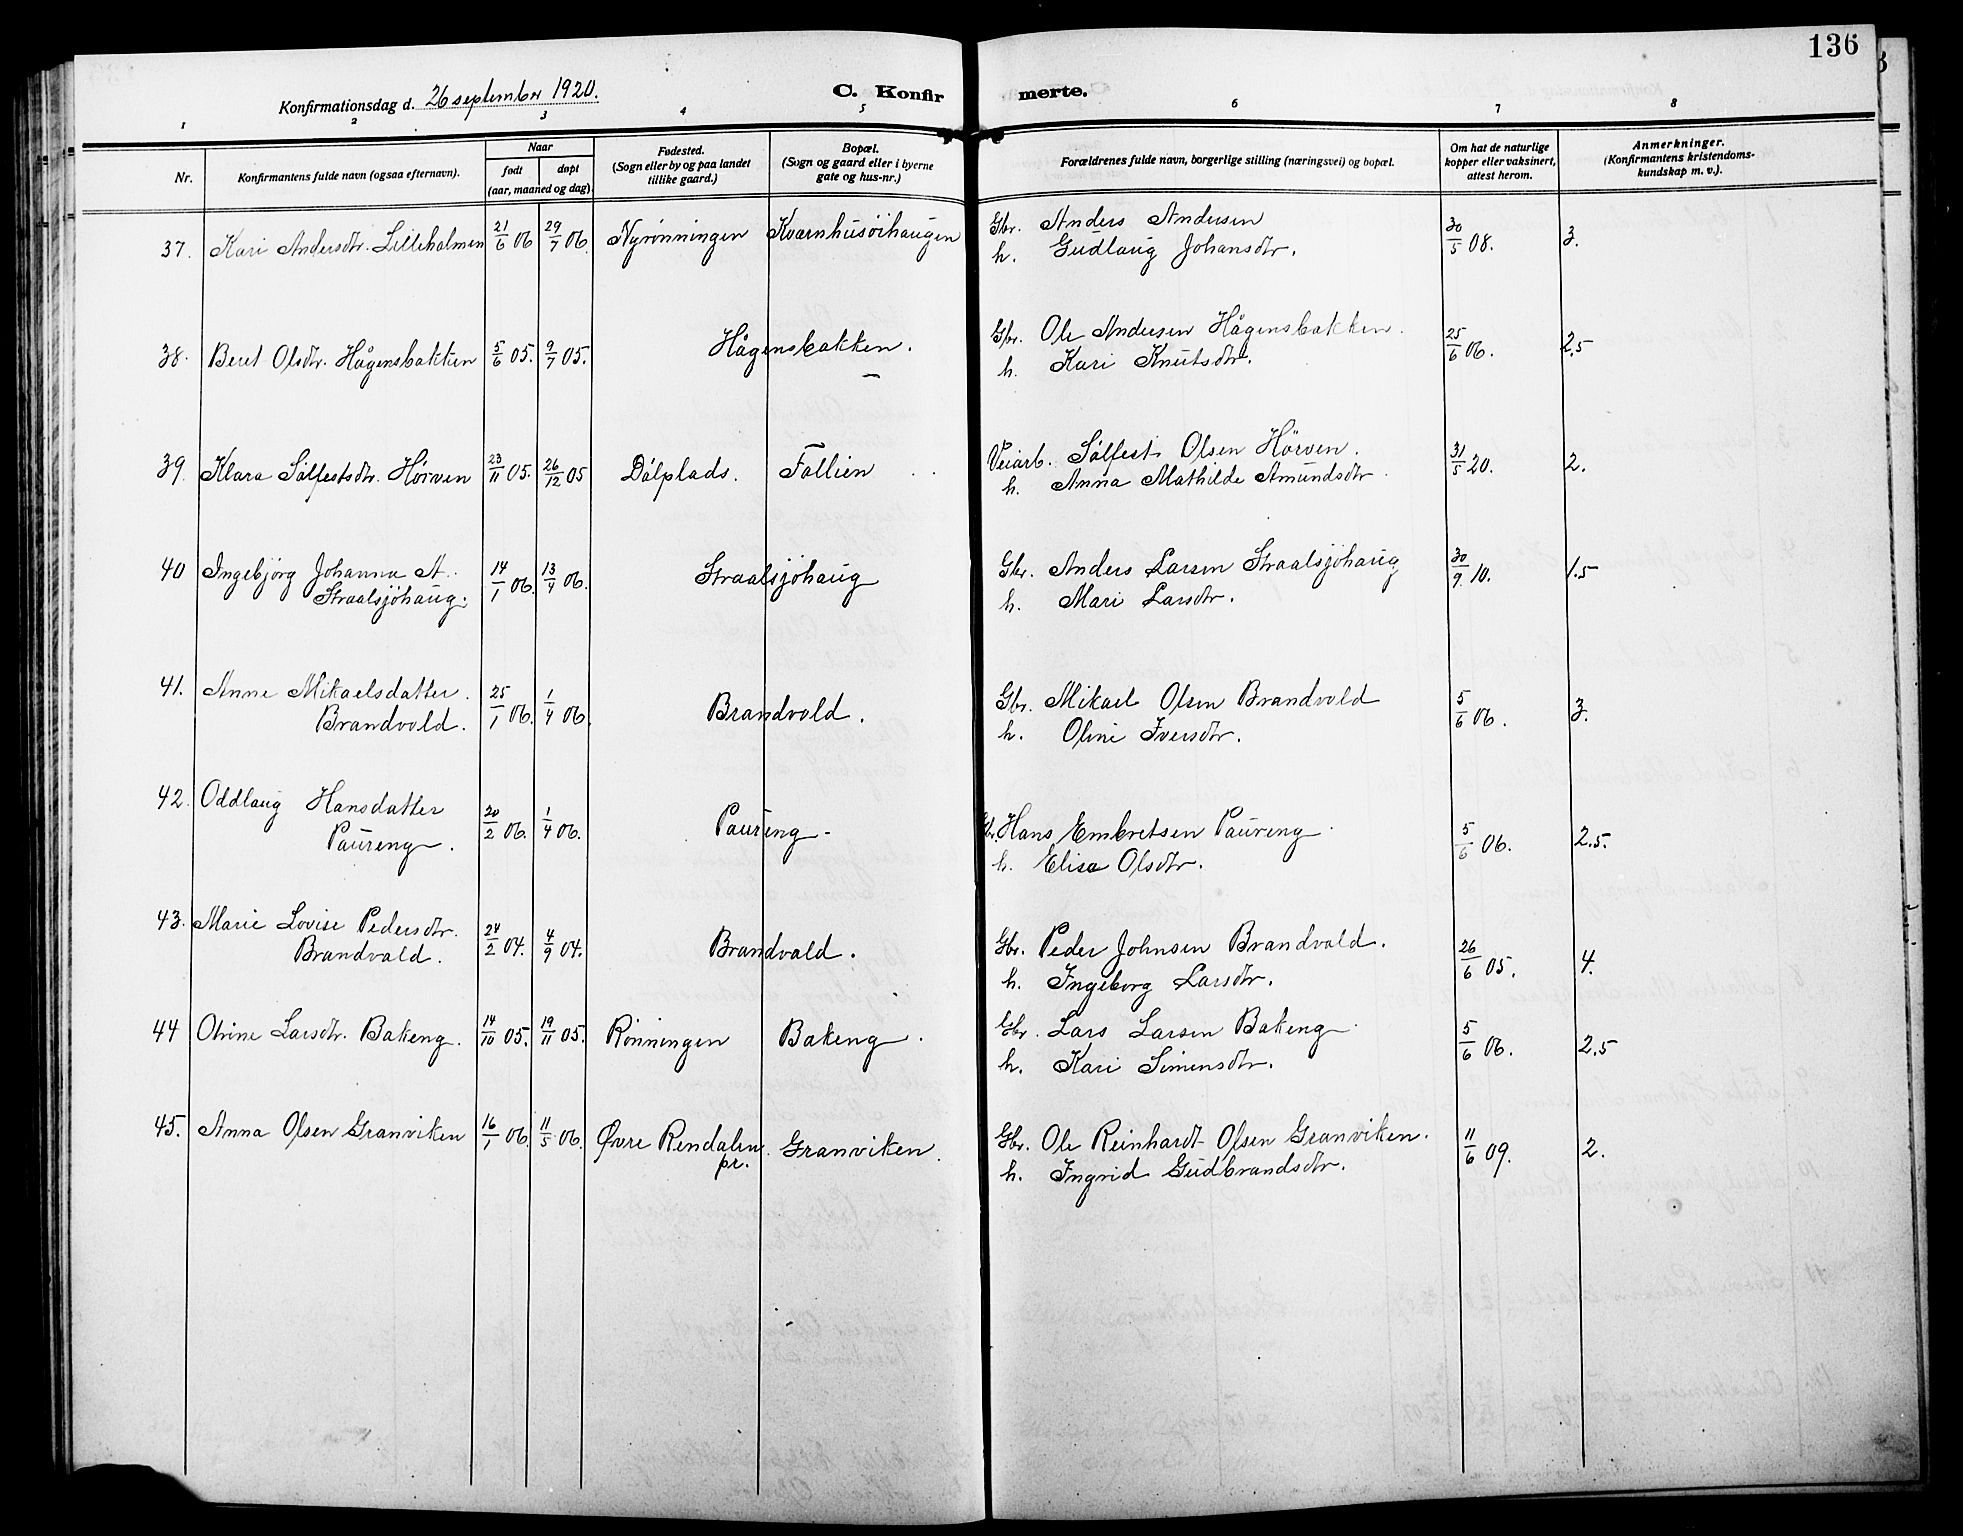 136
Konfirmationsdag d. 26 september 1920.
C. Konfir merte.
1 2 3 4 5 6 7 8
Nr. Konfirmantens fulde navn (ogsaa efternavn). Naar født døpt (aar, maaned og dag) Fødested. (Sogn eller by og paa landet tillike gaard.) Bopæl. (Sogn og gaard eller i byerne gate og hus-nr.) Forældrenes fulde navn, borgerlige stilling (næringsvei) og bopæl. Om hat de naturlige kopper eller vaksinert, attest herom. Anmerkninger. (Konfirmantens kristendoms-kundskap m. v.).
37. Kari Andersdtr. Lilleholmen 21/6 06 29/7 06. Nyrønningen Kvarnhusöihaugen Gbr. Anders Andersen 30/5 08. 3.
h. Gudlaug Johansdtr.
38. Beret Olsdtr. Hågensbakken 5/6 05. 9/7 05. Hågensbakken. Gbr. Ole Andersen Hågensbakken. 25/6 06. 2.5
h. Kari Knutsdtr.
39. Klara Sölfestsdtr. Hörven 23/11 05. 26/12 05 Dölplads. Fallien Veiarb. Sölfest Olsen Hörven. 31/5 20. 2.
h. Anna Mathilde Amundsdtr.
40 Ingebjörg Johanna A. 14/1 06. 13/4 06. Straalsjöhaug Gbr. Anders Larsen Straalsjöhaug 30/9. 10. 1.5
Straalsjöhaug. h. Mari Larsdtr.
41. Anne Mikaelsdatter. 25/1 06. 1/4 06. Brandvold. Gbr. Mikael Olsen Brandvold 5/6 06. 3.
Brandvold. h. Oline Iversdtr.
42. Oddlaug Hansdatter 20/2 06. 1/4 06. Paureng- Gbr. Hans Embretsen Paureng. 5/6 06. 2.5.
Paureng. h. Elise Olsdtr.
43. Marie Lovise Pedersdtr. 24/2 04. 4/9 04. Brandvald. Gbr. Peder Johnsen Brandvald. 26/6 05. 4.
Brandvald. h. Ingeborg Larsdtr.
44 Otrine Larsdtr. Bakeng. 14/10 05. 19/11 05. Rönningen Bakeng. Gbr. Lars Larsen Bakeng. 5/6 06. 2.5
h. Kari Simensdtr.
45. Anna Olsen Granviken 16/1 06. 11/5 06. Øvre Rendalen pr. Granviken. Gbr. Ole Reinhardt Olsen Granviken. 11/6 09. 2.
h. Ingrid Gudbrandsdtr.